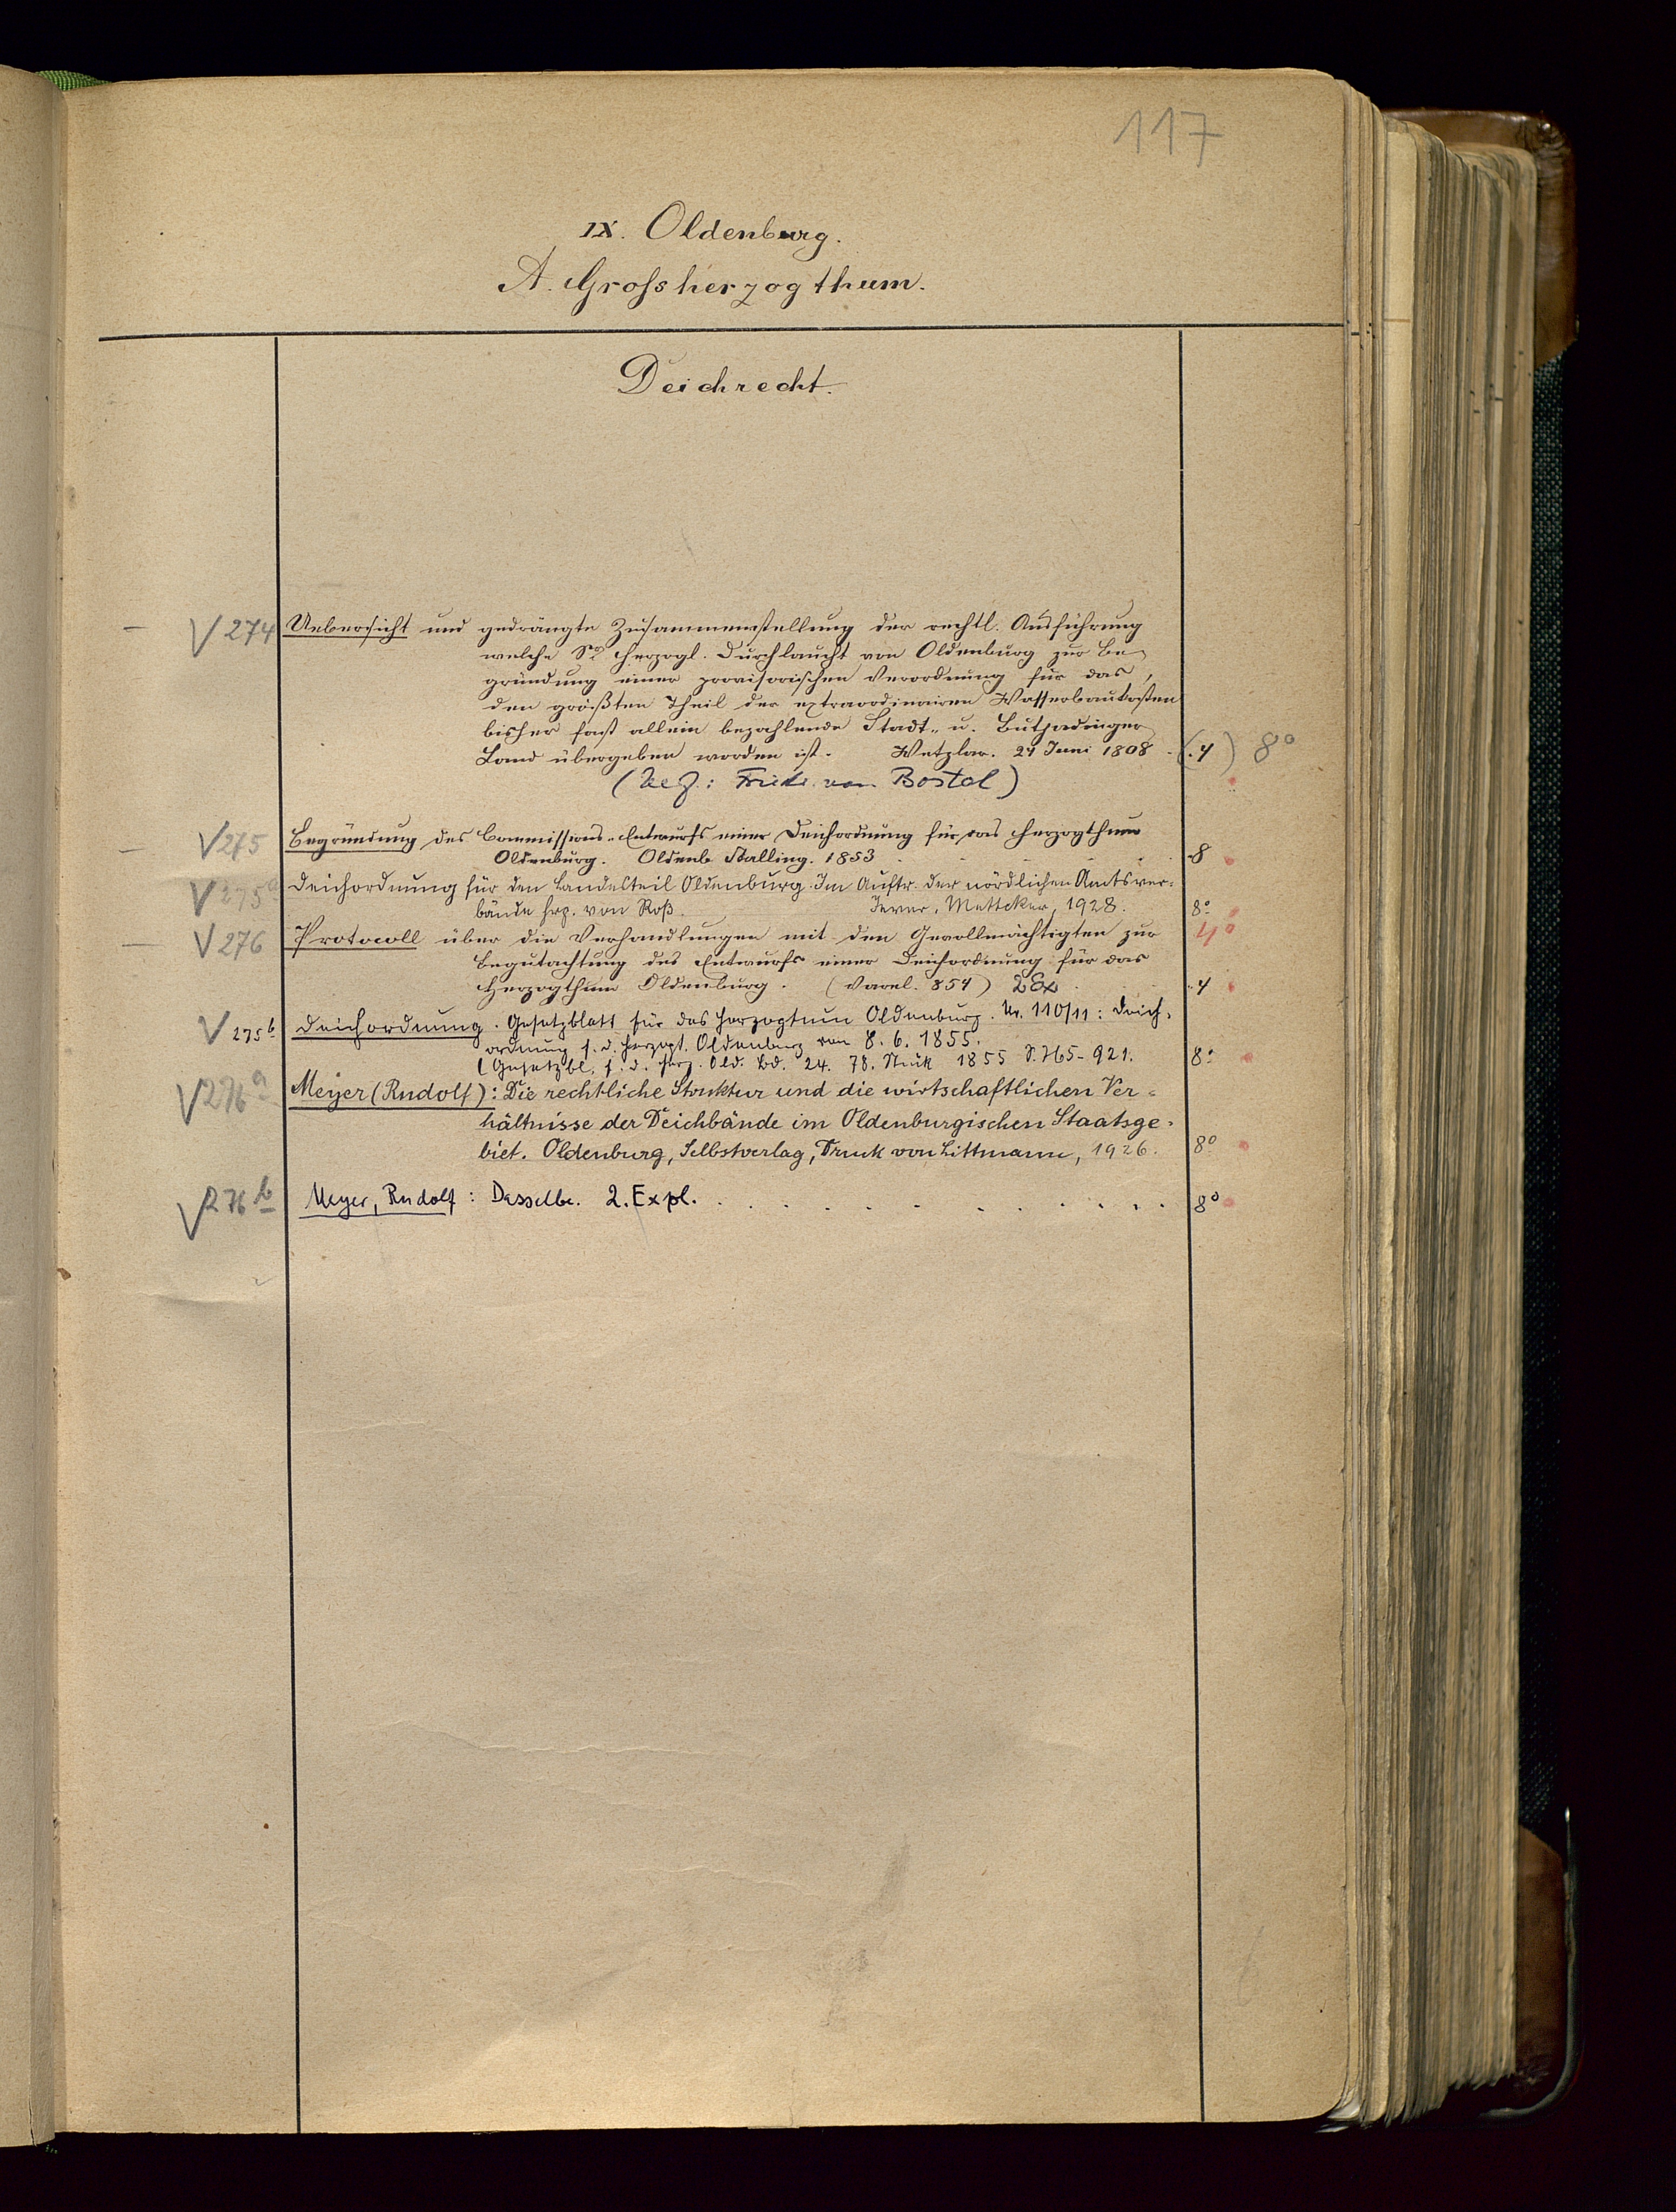 117
IX. Oldenburg.
A. Grossherzogthum.
Deichrecht.
V 274 Uebersicht und gedrängte Zusammenstellung der rechtl. Ausführung
welche Sr Herzogl. Durchlaucht von Oldenburg zur Be-
gründung einer provisorischen Verordnung für das,
den größten Theil der extraordinairen Wasserbaukosten
bisher fast allein bezahlende Stadt- u. Butjadinger
Land übergeben worden ist. Wetzlar. 24 Juni 1808 (.4) 8°
(Verf.: Friedr. von Bostel)
V 275 Begründung des Commissions-Entwurfs einer Deichordnung für das Herzogthum
Oldenburg. Oldenb Stalling. 1853 8
V 275a Deichordnung für den Landesteil Oldenburg. Im Auftr. der nördlichen Amtsver-
bände hrg. von Roß. Jever, Mettcker, 1928. 8°
V 276 Protocoll über die Verhandlungen mit den Gevollmächtigten zur 4°
Begutachtung des Entwurfs einer Deichordnung für das
Herzogthum Oldenburg. (Varel. 854) 2 Ex 4
V 275b Deichordnung. Gesetzblatt für das Herzogtum Oldenburg. Nr. 110/11: Deich-
ordnung f. d. Herzogt. Oldenburg von 8. 6. 1855.
(Gesetzbl. f. d. Herz. Old. Bd. 24. 78. Stück 1855 S. 765-921. 8°
V 276a Meyer (Rudolf): Die rechtliche Struktur und die wirtschaftlichen Ver-
hältnisse der Deichbände im Oldenburgischen Staatsge-
biet. Oldenburg, Selbstverlag, Druck von Littmann, 1926. 8°
V 276b Meyer, Rudolf: Dasselbe. 2. Expl. 8°